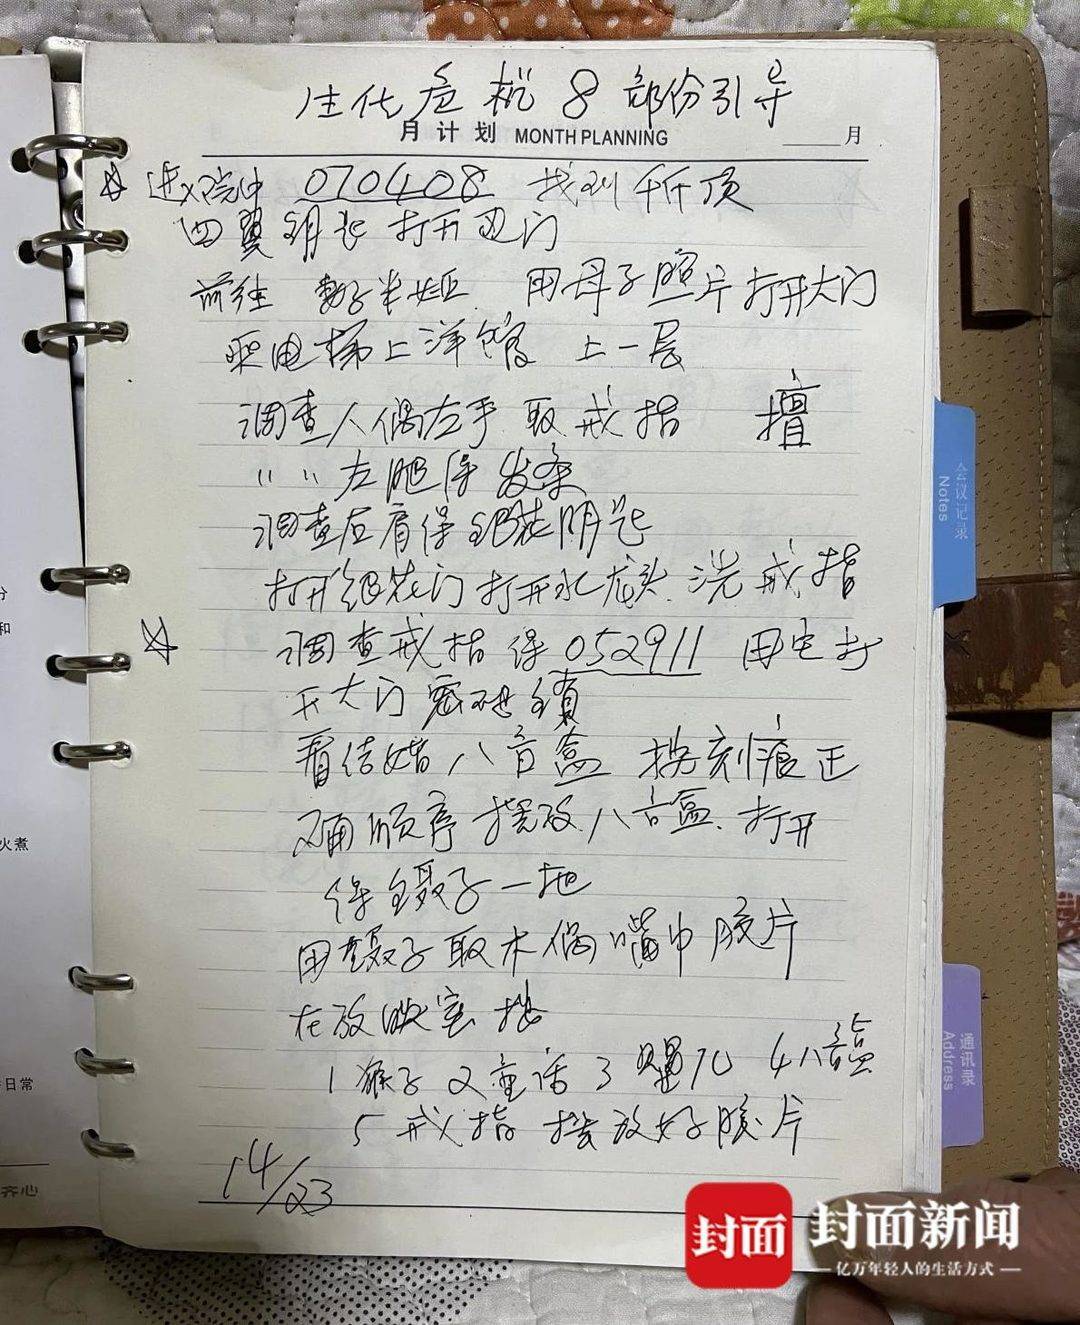 生化危机8部份引导
月计划 MONTH PLANNING 月
进入院中 070408 找到千斤顶
四翼钥匙打开边门
前往 用母子照片打开大门
乘电梯上洋馆 上一层
调查人偶左手取戒指 擅
〃〃左腿得发条
调查右肩得 钥匙
打开 门打开水龙头 洗戒指
调查戒指得 052911 用它打
开大门密码锁
看结婚八音盒 按刻痕正
确顺序摆放八音盒 打开
得镊子一把
用镊子取木偶嘴中胶片
在放映室 把
1猴子 2童话 3婴儿 4八音盒
5戒指 摆放好胶片
14/23
会议记录
Notes
通讯录
Address
分
和
火煮
日常
齐心
封面
封面新闻
亿万年轻人的生活方式